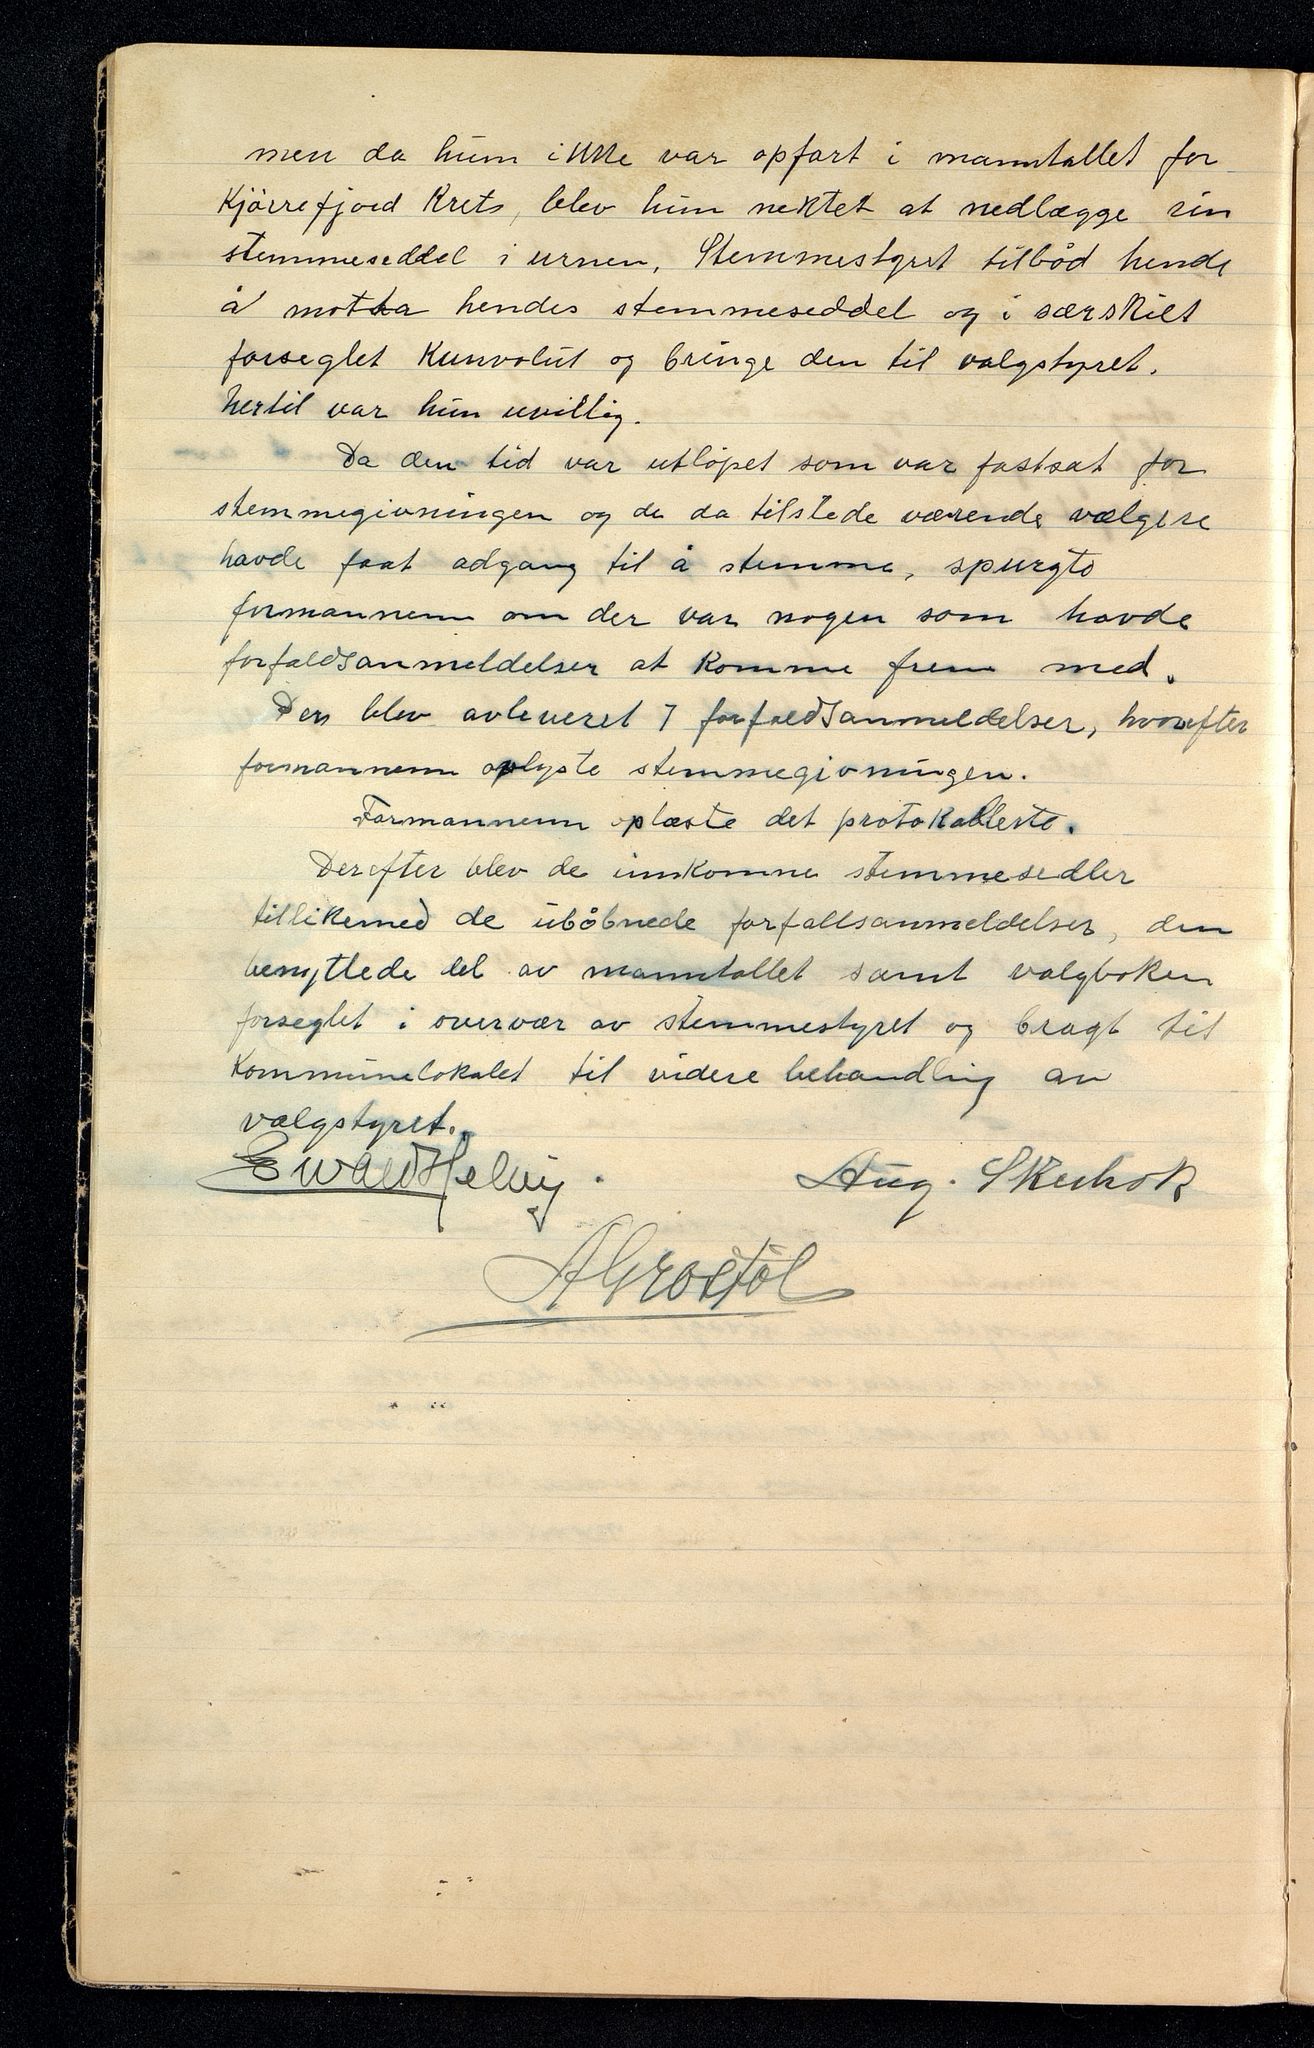 men da hun ikke var opført i manntallet for
Kjørrefjord Krets, blev hun nektet at nedlægge sin
stemmeseddel i urnen, Stemmestyret tilbød hende
å motta hendes stemmeseddel og i særskilt
forseglet Kunvolut og bringe den til valgstyret.
hertil var hun uvillig.
Da den tid var utløpet som var fastsat for
stemmegivningen og de da tilstede værende vælgere
havde faat adgang til å stemme, spurgte
formannenn om der var nogen som havde
forfaldsanmeldelser at komme frem med.
Der blev avleveret 7 forfaldsanmeldelser, hvorefter
formannenn oplyste stemmegivningen.
Formannenn oplæste det protokallerte.
Derefter blev de innkomne stemmesedler
tillikemed de uåbnede forfallsanmeldelser, den
benyttede del av manntallet samt valgboken
forseglet i overvær av stemmestyret og bragt til
Kommunelokalet til videre behandling av
valgstyret.
Ewald Helvig. Aug. Skeibrok
A Grostøl